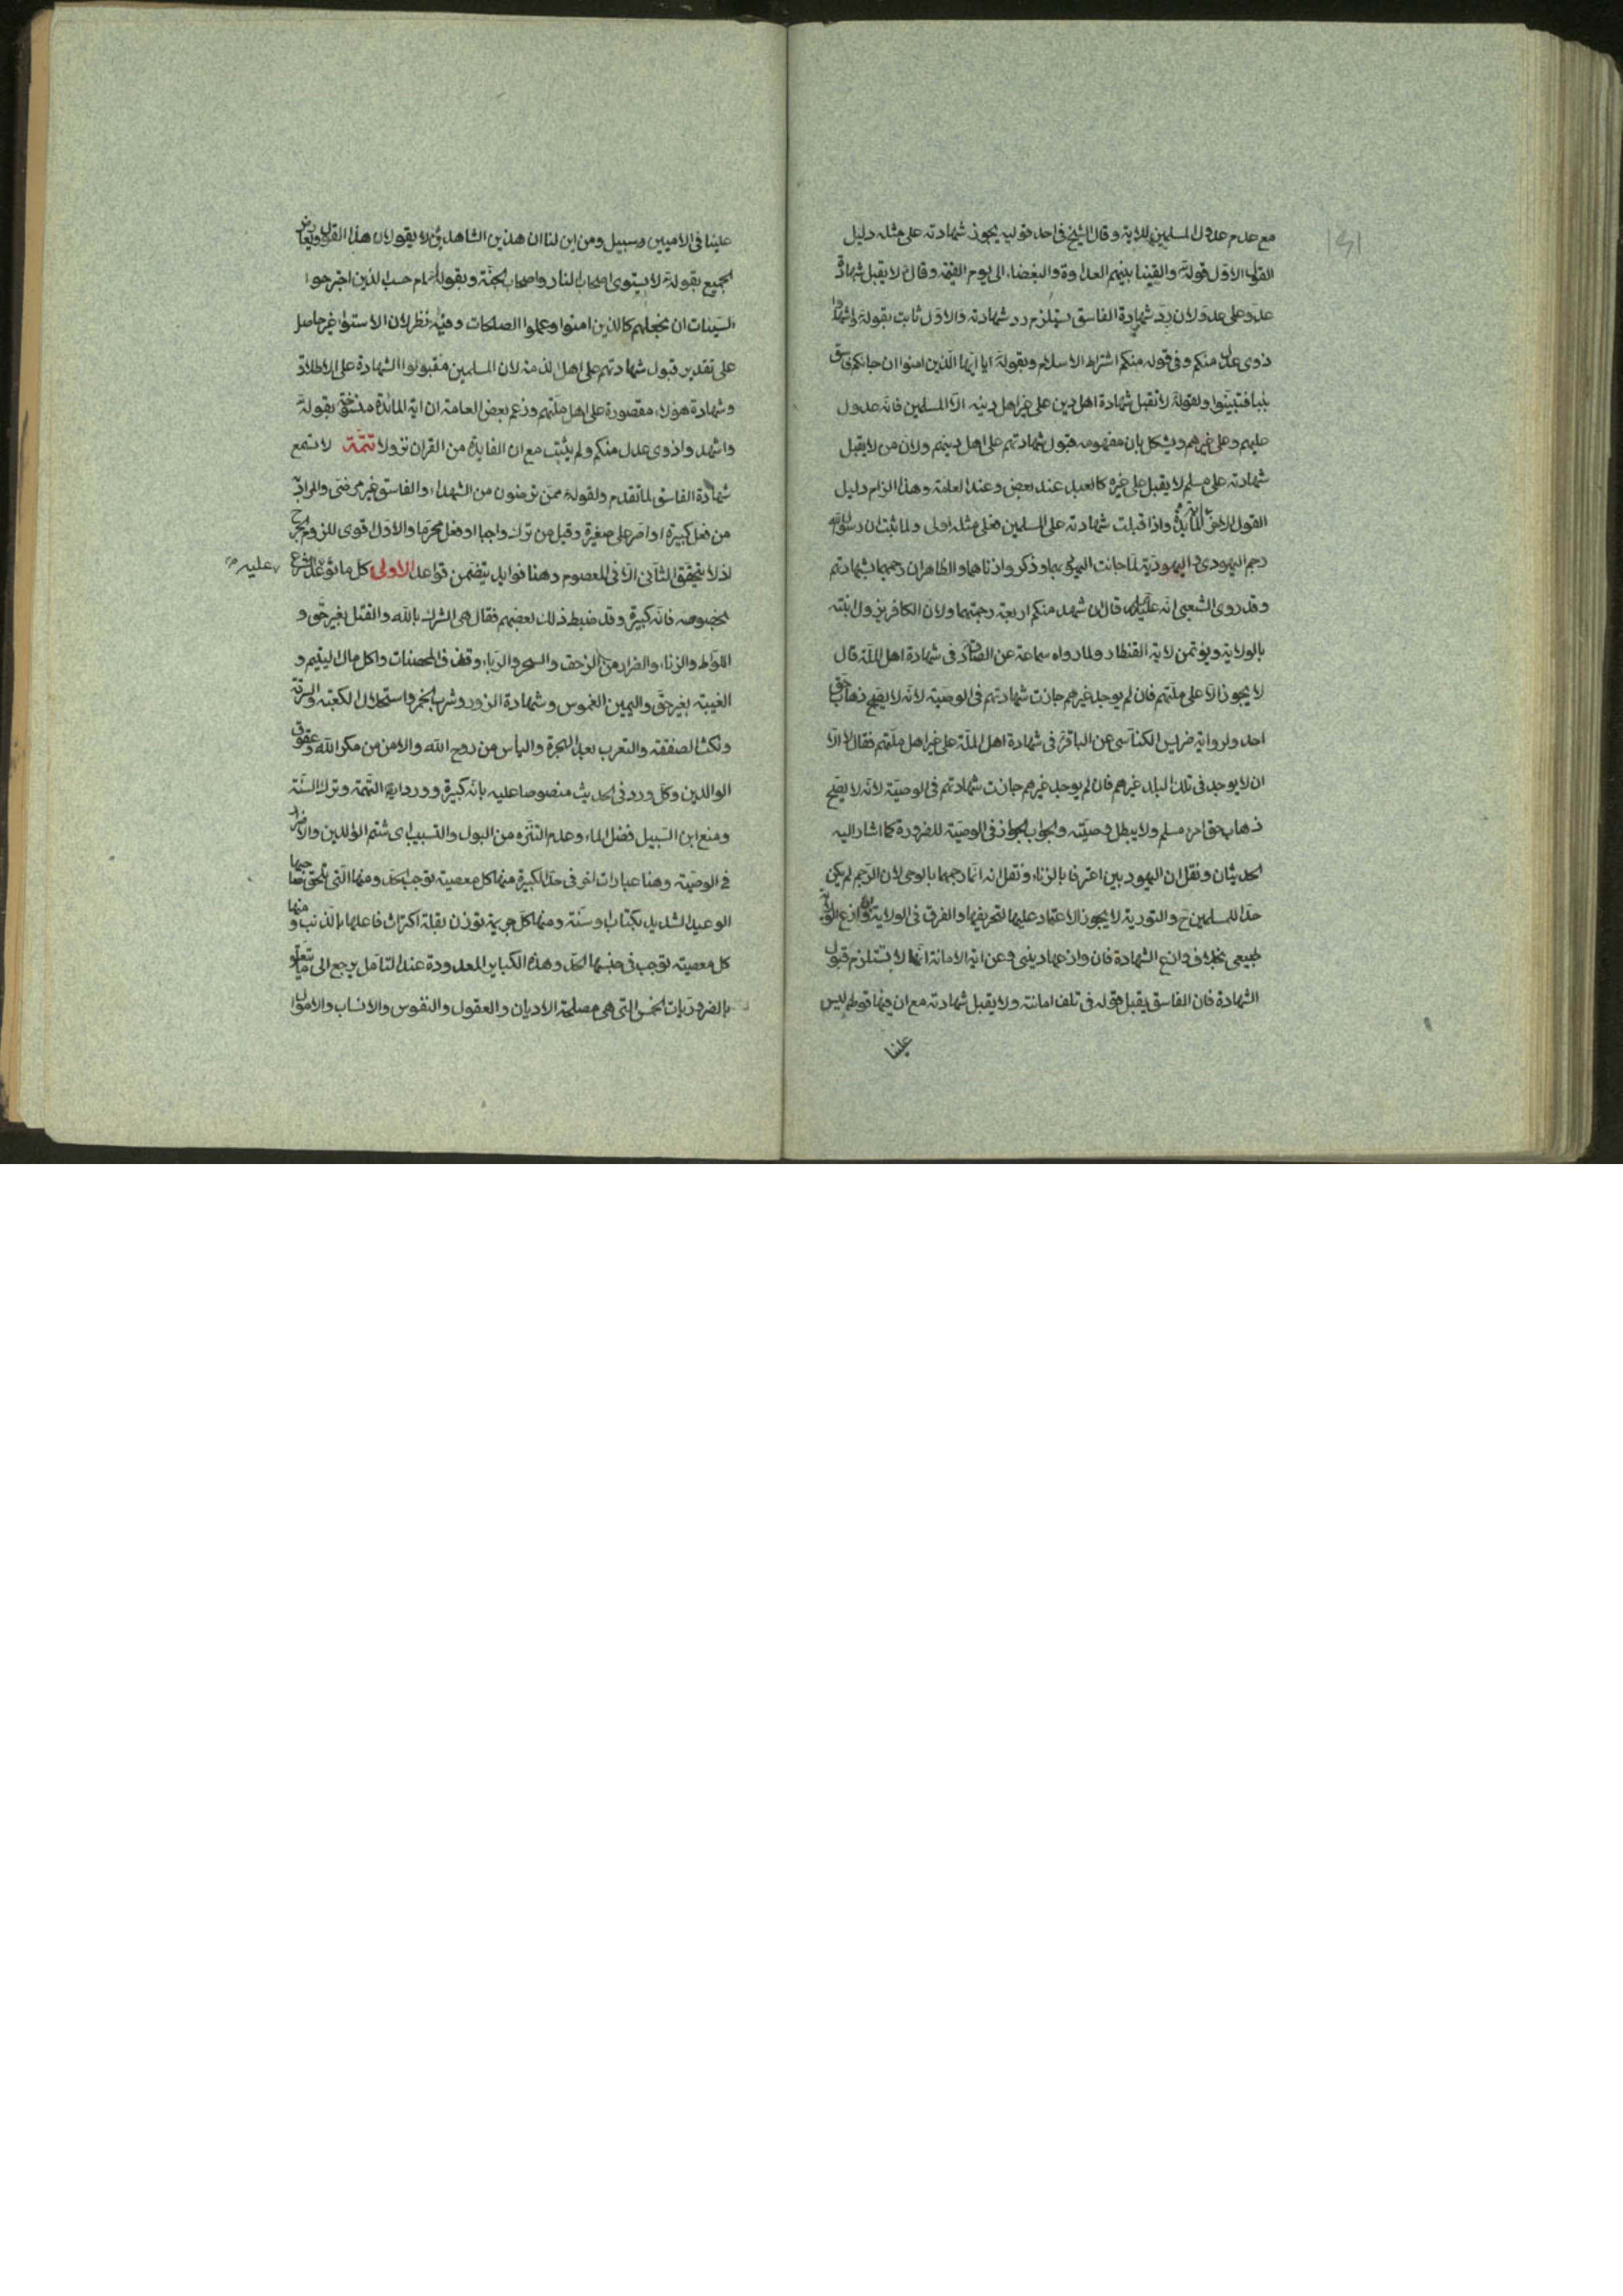 ١٣١
مع عدم عدول المسلمين للاية و قال الشيخ فى احد قوليه يجوز شهادته على مثله دليل
القول الاول قوله والقينا بينهم العداوة والبغضاء الى يوم القيمة وقال لا يقبل شهادة
عدو على عدو ولان رد شهادة الفاسق يستلزم رد شهادته والاول ثابت بقوله واشهدوا
ذوى عدل منكم وفى قوله منكم اشتراط الاسلام وبقوله ايا ايها الذين امنوا ان جائكم فاسق
بنبا فتبينوا ولقوله لا تقبل شهادة اهل دين على غير اهل دينه الا المسلمين فانه عدول
عليهم وعلى غيرهم ويشكل بان مفهومه قبول شهادتهم على اهل دينهم ولان من لا يقبل
شهادته على مسلم لا يقبل على غيره كالعبد عند بعض وعند العامة وهذا الزام دليل
القول المائدة واذا قبلت شهادته على المسلمين فعلى مثله اولى ولما ثبت ان رسول الله
رجم اليهودى و اليهودية لما جائت اليهود بهما وذكروا زناهما والظاهر ان رجمهما بشهادتهم
وقد روى الشعبى انه عليه قال ان شهد منكم اربعة رجمتهما ولان الكافر يزول ابنته
بالولاية ويؤتمن لاية القنطار ولما رواه سماعة عن الصادق فى شهادة اهل الملة قال
لا يجوز الا على ملتهم فان لم يوجد غيرهم جازت شهادتهم فى الوصية لانه لا يصلح ذهاب حق
احد ولرواية ضريس الكناسى عن الباقر فى شهادة اهل الملة على غير اهل ملتهم فقال لا الا
ان لا يوجد فى تلك البلد غيرهم فان لم يوجد غيرهم جازت شهادتهم فى الوصية لانه لا يصلح
ذهاب حق امرء مسلم ولا يبطل وصيته والجواب الجواز فى الوصية للضرورة كما اشار اليه
الحديثان ونقل ان اليهوديين اعترفا بالزناء ونقل انه انما رجمهما بالوحى لان الرجم لم يكن
حدا للمسلمين ح والتورية لا يجوز الاعتماد عليها لتحريفها والفرق فى الولاية وازع الولاية
طبيعى بخلاف وازع الشهادة فان وازعها دينى وعن اية الامانة انها لا يستلزم قبول
الشهادة فان الفاسق يقبل قوله فى تلف امانته ولا يقبل شهادته مع ان فيها قولهم ليس
علينا
علينا فى الاميين سبيل ومن اين لنا ان هذين الشاهدين لا يقولان هذا القول ويعارض
الجميع بقوله لا يستوى اصحاب النار واصحاب الجنة وبقوله ام حسب الذين اجترحوا
السيئات ان نجعلهم كالذين امنوا وعملوا الصالحات وفيه نظر لان الاستواء غير حاصل
على تقدير قبول شهادتهم على اهل الذمة لان المسلمين مقبولوا الشهادة على الاطلاق
وشهادة هؤلاء مقصورة على اهل ملتهم وزعم بعض العامة ان اية المائدة منسوخة بقوله
واشهدوا ذوى عدل منكم ولم يثبت مع ان المايدة من القران نزولا تتمة لا تسمع
شهادة الفاسق لما تقدم ولقوله ممن ترضون من الشهداء والفاسق غير مرضى والمراد به
من فعل كبيرة او اصر على صغيرة وقيل من ترك واجبا او فعل محرما والاول اقوى للزوم الحرج
اذ لا يتحقق الثانى الا فى المعصوم وهنا فوايد يتضمن قواعد الاولى كل ما توعد الشرع
عليه
بخصوصه فانه كبيرة وقد ضبط ذلك بعضهم فقال هى الشرك بالله والقتل بغير حق و
اللواط والزناء والفرار من الزحف والسحر والرباء وقذف المحصنات واكل مال اليتيم و
الغيبة بغير حق واليمين الغموس وشهادة الزور وشرب الخمر واستحلال الكعبة والسرقة
ونكث الصفقة والتعرب بعد الهجرة والياس من روح الله والامن من مكر الله وعقوق
الوالدين وكل ورد فى الحديث منصوصا عليه بانه كبيرة وورد ايضا التهمة وترك السنة
ومنع ابن السبيل فضل الماء وعدم التنزه من البول والتسبب اى شتم الوالدين والاضرار
فى الوصية وهنا عبارات اخر فى حد الكبيرة منها كل معصية توجب الحد ومنها التى يلحق صاحبها
الوعيد الشديد بكتاب او سنة ومنها كل جريمة تؤذن بقلة اكتراث فاعلها بالذنب و منها
كل معصية توجب فى جنسها الحد وهذه الكباير المعدودة عند التامل يرجع الى ما يتعلق
بالضروريات الخمس التى هى مصلحة الاديان والعقول والنفوس والانساب والاموال